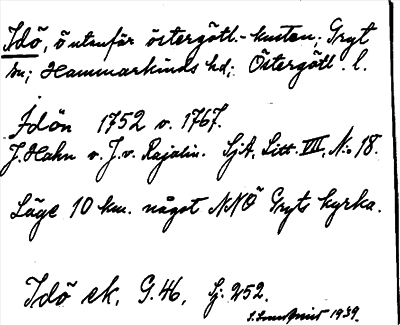 Idö, ö utanför östergötl.-kusten; Gryt
sn; Hammarkinds hd; Östergötl. l.
Idön 1752 o. 1767.
J. Hahn o. J. v. Rajalin. SjA. Litt. VIII, N:o 18.
Läge 10 km. något NNÖ Gryts kyrka.
Idö ek. G.46, Sj: 252.
1939.